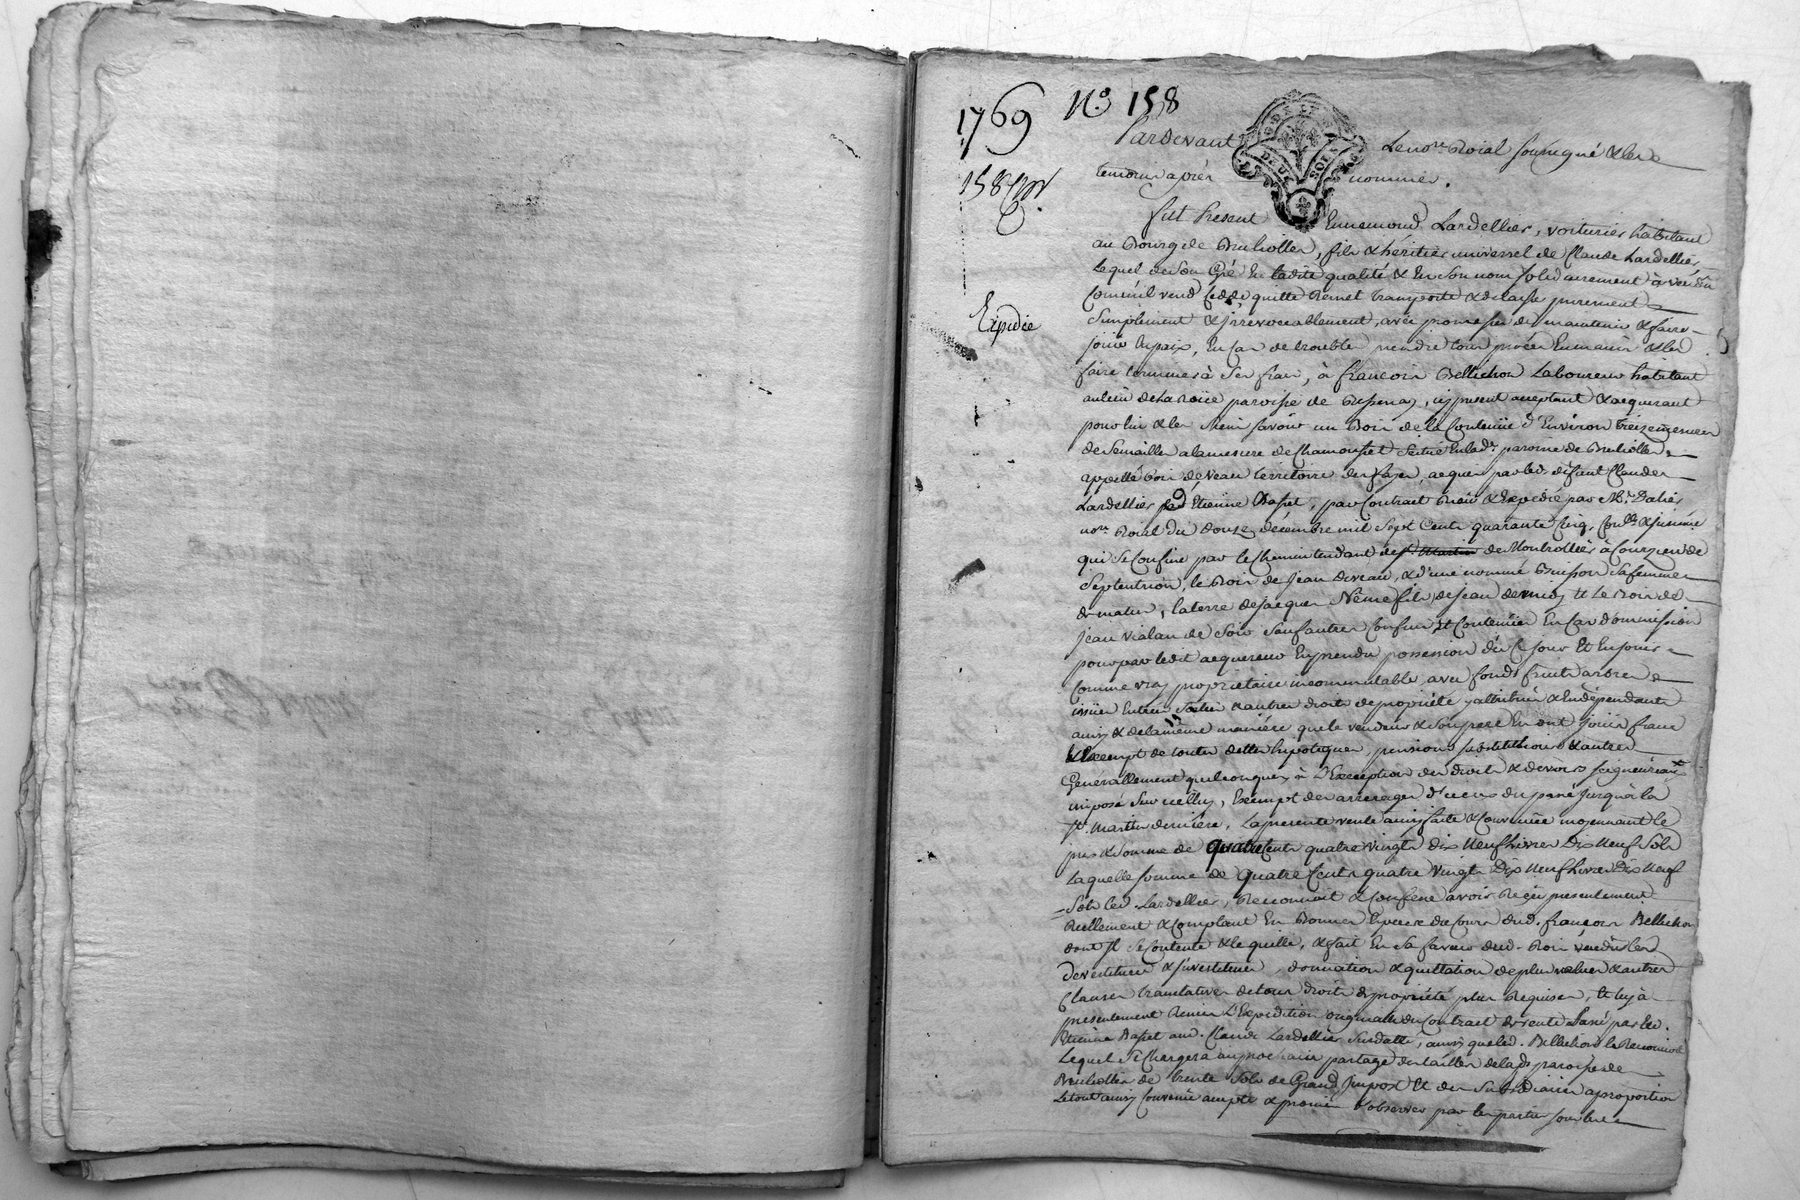 1769
N° 158
158
Expédié
DEUX SOLS
Pardevant Le no.re Roial soussigné & les
temoins après nommés.
fut Present Ennemond Lardellier, voiturier habitant
au Bourg de Brulliolles, fils & héritier universel de Claude Lardellier
Lequel de son Gré En ladite qualité & En son nom solidairement a vec
vend Cedde quitte Remet transporte & delaisse purement
Simplement & irrevocablement, avec promesse de maintenir & faire
jouir En paix, En Cas de trouble prendre tour procès En main & les
faire terminer à Ses frais, à françois Bellichon Laboureur habitant
au lieu de La paroisse de Bessenay, icy present acceptant & acquerant
pour lui & les Siens savoir un Bois de la Contenüe d'Environ treize mesures
de Semailles a la mesure de Chamousset Scitué En lad. paroisse de Brulliolles
appellé Bois territoire des fayes, acquis par led. défunt Claude
Lardellier d'Etienne Basset, par Contract Recu & Expedié par M.e
no.re Roial du Douze décembre mil Sept Cents quarante Cinq,
qui Se Confine par le Chemin tendant de Montrottier à Courzieu de
Septentrion, le Bois de jean & d'une nommé Buisson Sa femme
de matin, la terre de jacques fils de jean de midy Et Le Bois de
jean vialan de Soir Sauf autres Confins Et Contenüe En Cas d'omission
pour par ledit acquereur En prendre possession dès Ce jour Et En jouir
Comme vray proprietaire incommutable avec fonds fruits arbres
issües Entrées Sorties & autres droits de propriété y attribués & En dépendants
ainsy & de la même manière que le vendeur & Son pere En ont joui franc
& Exempt de toutes dettes hipoteques, pensions substitutions & autres
Generallement quelconques à L'Exception des droits & devoirs seigneuriaux
imposé Sur icelluy, Exempt des arrerages d'iceux du passé jusqu'à la
S.t Martin derniére. La presente vente ainsy faite & Convenüe moyennant le
prix & Somme de quatre Cents quatre vingts dix Neuf Livres Dix Neuf Sols
Laquelle somme de quatre Cents quatre vingts Dix Neuf Livres Dix Neuf
Sols led. Lardellier, Reconnoit & Confesse avoir Reçu presentement
Reellement & Comptant En Bonnes Especes du Cours dud. françois Bellichon
dont Il Se Contente & le quitte, & fait En Sa faveur dud. Bois vendu les
devestitures & investitures, donnation & quittation de plus value & autres
Clauses translatives de tous droits de propriété plus Requises, Et luy à
presentement Remis L'Expedition originalle du Contract de vente Passé par led.
Etienne Basset aud. Claude Lardellier Susdatté, ainsy que led. Bellichon le Reconnoit
Lequel Se Chargera au prochain partage des tailles de lad. paroisse de
Brulliolles de trente Sols de Grand Impost Et des Subsidiaires a proportion
Le tout ainsy Convenu accepté & promis d'observer par les parties